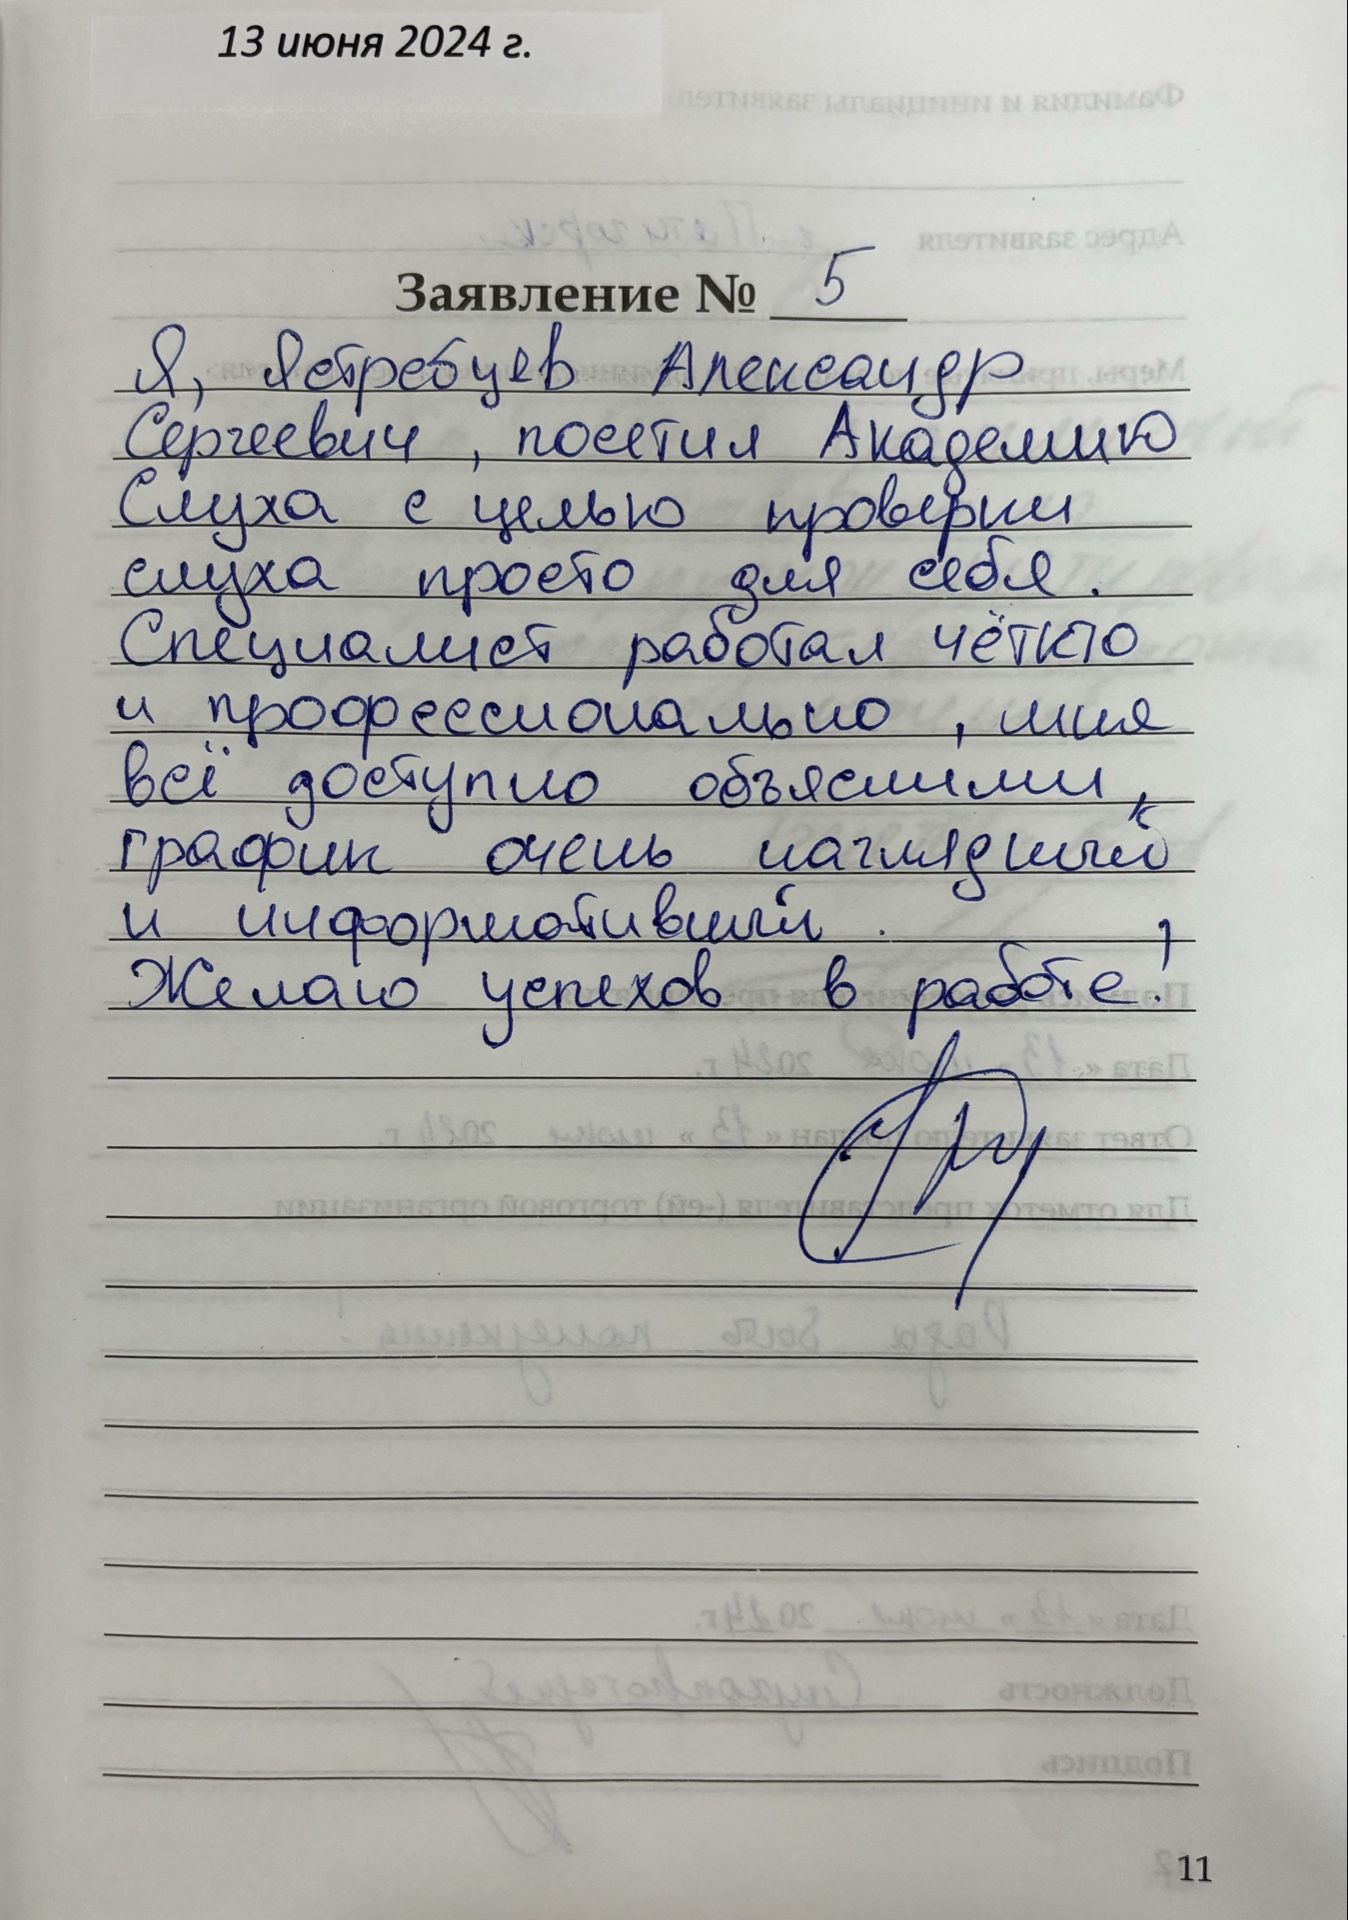 13 июня 2024 г.
Заявление № 5
Я, Ястребцев Александр
Сергеевич, посетил Академию
Слуха с целью проверки
слуха просто для себя.
Специалист работал чётко
и профессионально, мня
всё доступно объяснили,
график очень наглядный
и информативный.
Желаю успехов в работе!
11